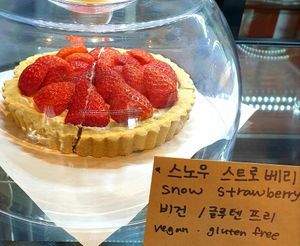 스노우 스트로베리
snow strawberry
비건 / 글루텐 프리
vegan · gluten free